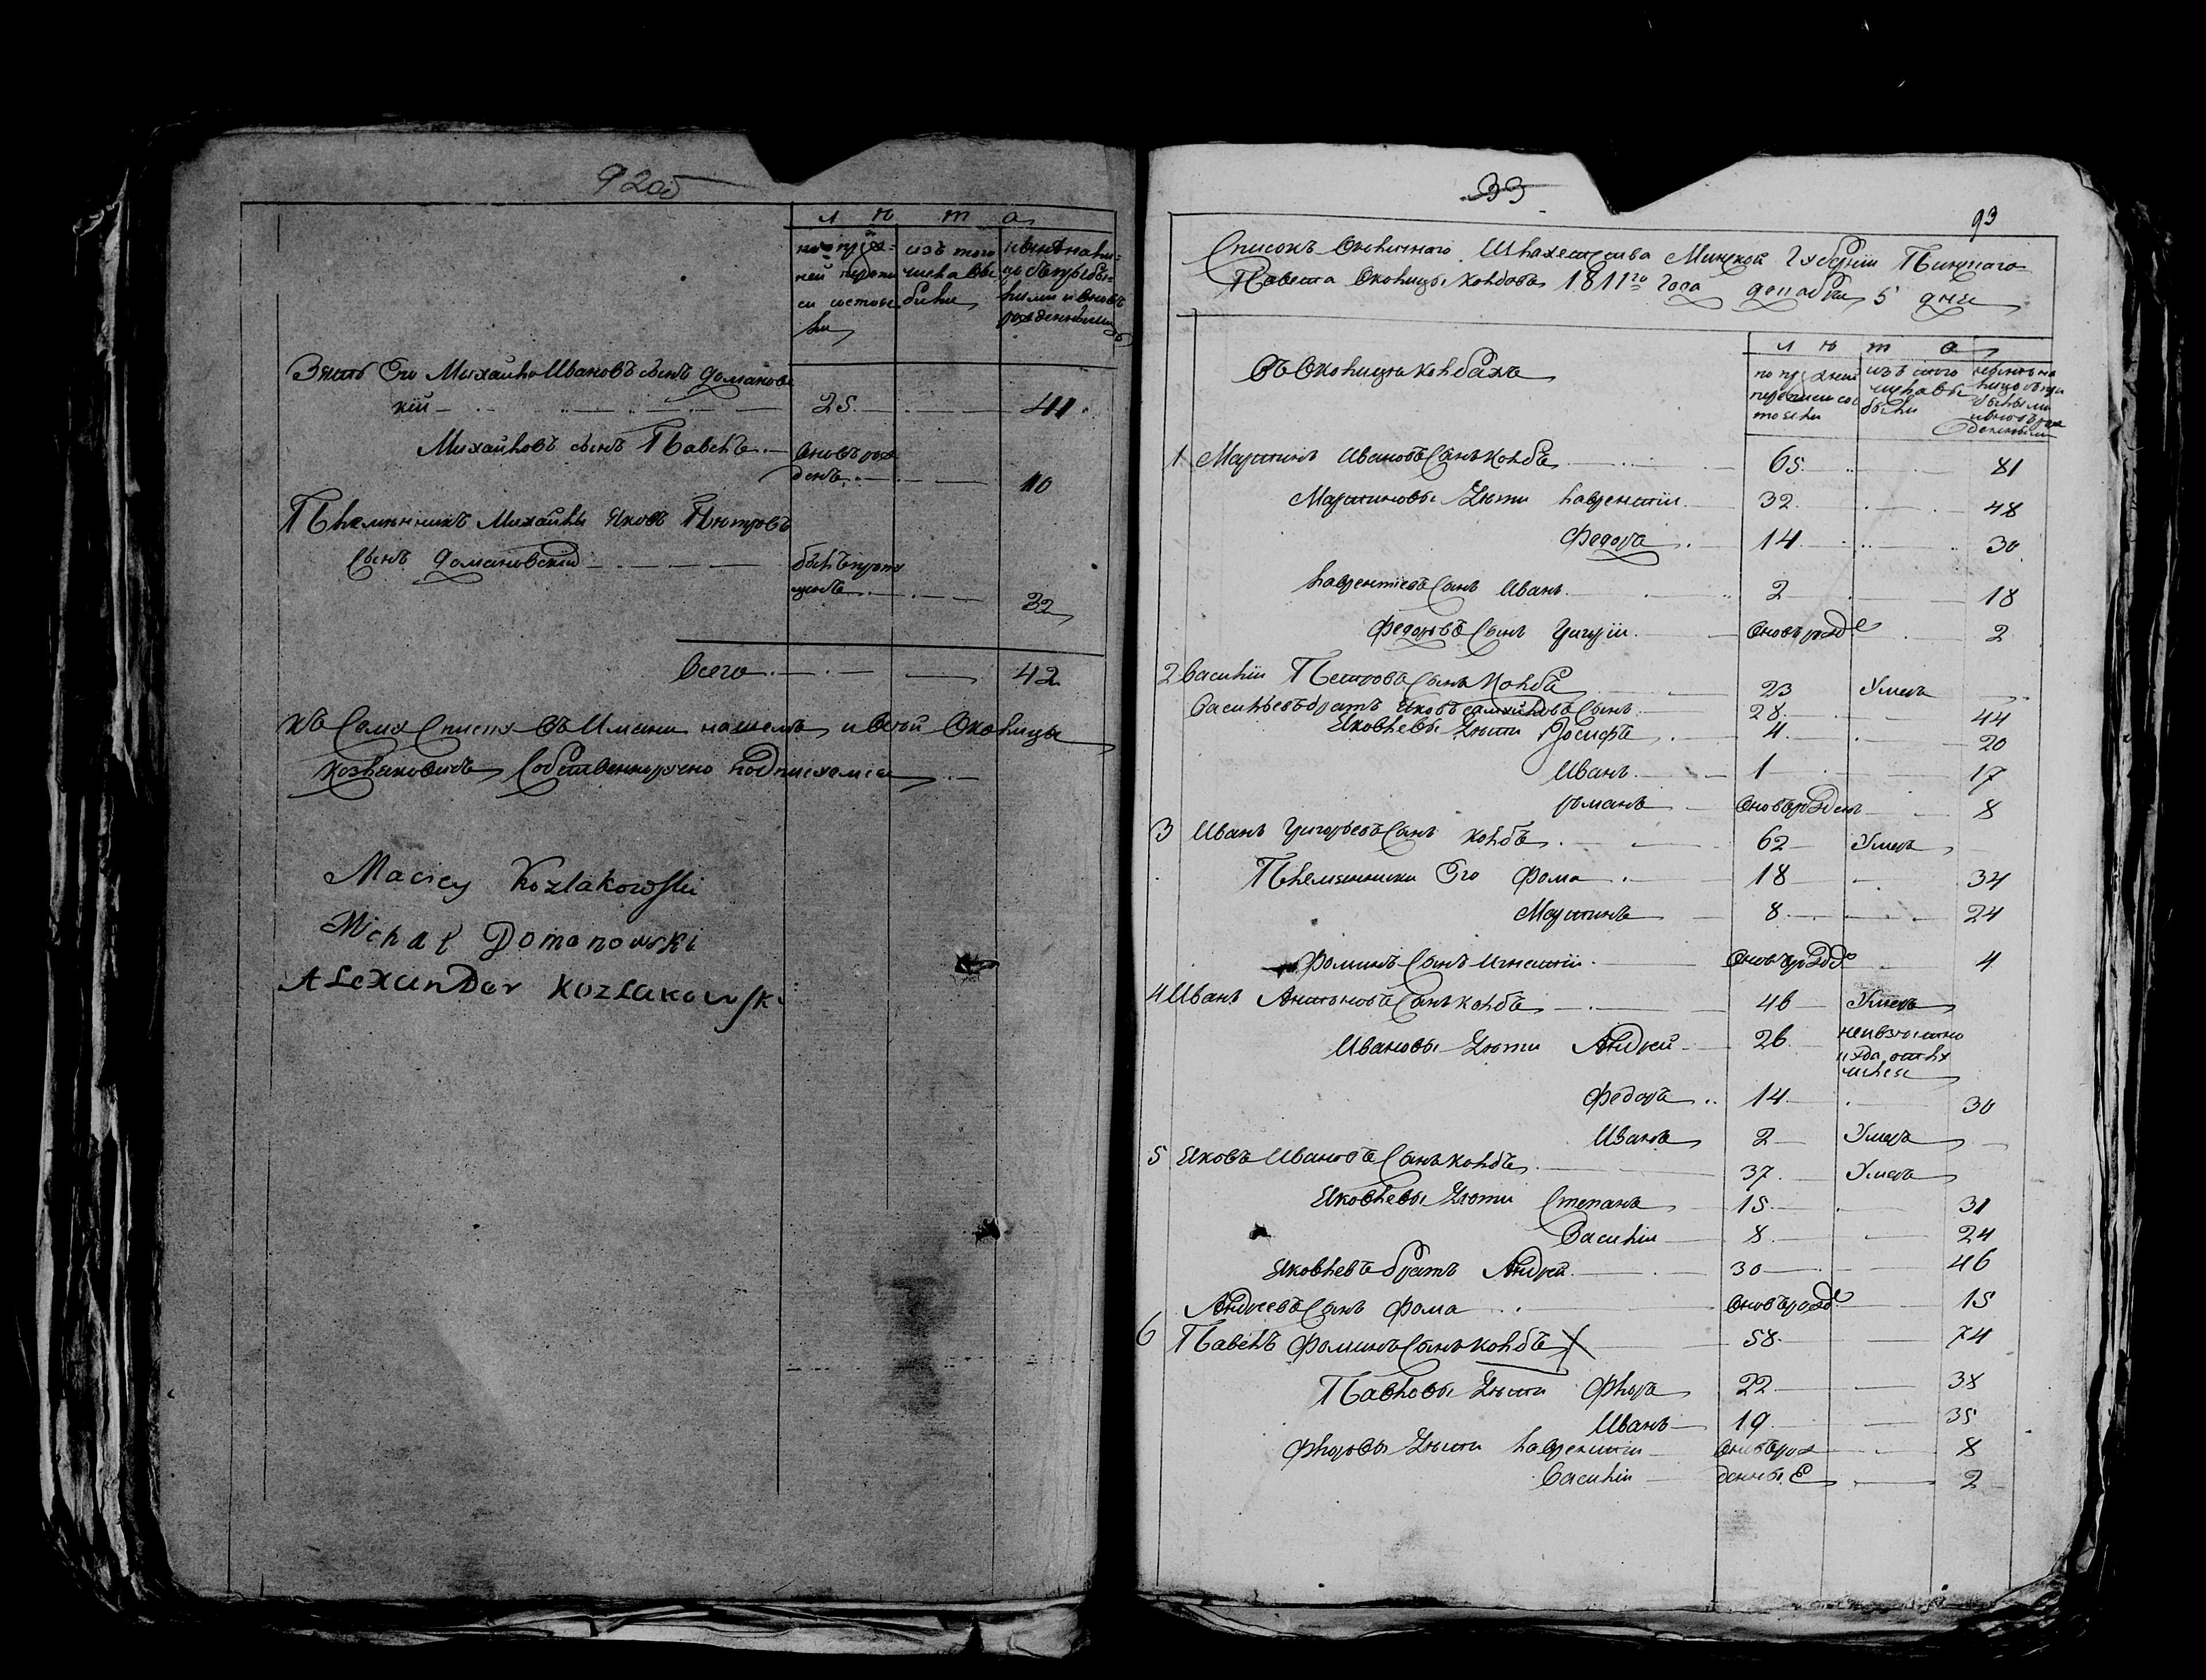 92об
лѣта
по преж=
ней перепи
си состоя
ли
изъ того
числа вы
были
нынѣ на ли=
цо съ прибы=
лыми и вновь
рожденными
Зять Его Михайло Ивановъ сынъ Доманов
кій 25 41
Михайловъ сынъ Павелъ вновь рож
денъ 10
Племянникъ Михайлы Яковъ Петровъ
сынъ Домановскій былъ пропу
щенъ 32
Всего 42
Къ Сему Списку въ Имени нашемъ и всей Околицы
Козляковичъ Собственноручно подписуемся
Maciey Kozlakowski
Michał Domanowski
ALexanDer KozLakowski
33
93
Списокъ Околичного Шляхетства Минской Губерніи Пинскаго
Повета Околицы Колбовъ 1811го Года декабря 5 дня
лѣта
Въ Околицы Колбахъ
по прежней
переписи сос
тояли
изъ того
числа вы
были
нынѣ на
лицо съ при
былыми
и вновь рож
денными
1 Мартинъ Ивановъ Сынъ Колбъ 65 81
Мартиновы Дѣти Лаврентій 32 48
Федоръ 14 30
Лаврентіевъ Сынъ Иванъ 2 18
Федоровъ Сынъ Григорій вновь рожде 2
2 Василій Петровъ Сынъ Колбъ 23 Умеръ
Васильевъ братъ Яковъ Сынъ 28 44
Яковлевы Дѣти Іосифъ 4 20
Иванъ 1 17
Романъ вновь рожденъ 8
3 Иванъ Григорьевъ Сынъ Колбъ 62 Умеръ
Племянники Его Фома 18 34
Мартинъ 8 24
Фоминъ Сынъ Игнатій вновь рожде 4
4 Иванъ Антоновъ Сынъ Колбъ 46 Умеръ
Ивановы Дѣти Андрей 26 неизвѣстно
куда отлу
чился
Федоръ 14 30
Иванъ 2 Умеръ
5 Яковъ Ивановъ Сынъ Колбъ 37 Умеръ
Яковлевы Дѣти Степанъ 15 31
Василій 8 24
Яковлевъ братъ Андрей 30 46
Андреевъ Сынъ Фома вновь рожде 15
6 Павелъ Фоминъ Сынъ Колбъ 58 74
Павловы Дѣти Флоръ 22 38
Иванъ 19 35
Флоровы Дѣти Лаврентій вновь рож 8
Василій денные 2